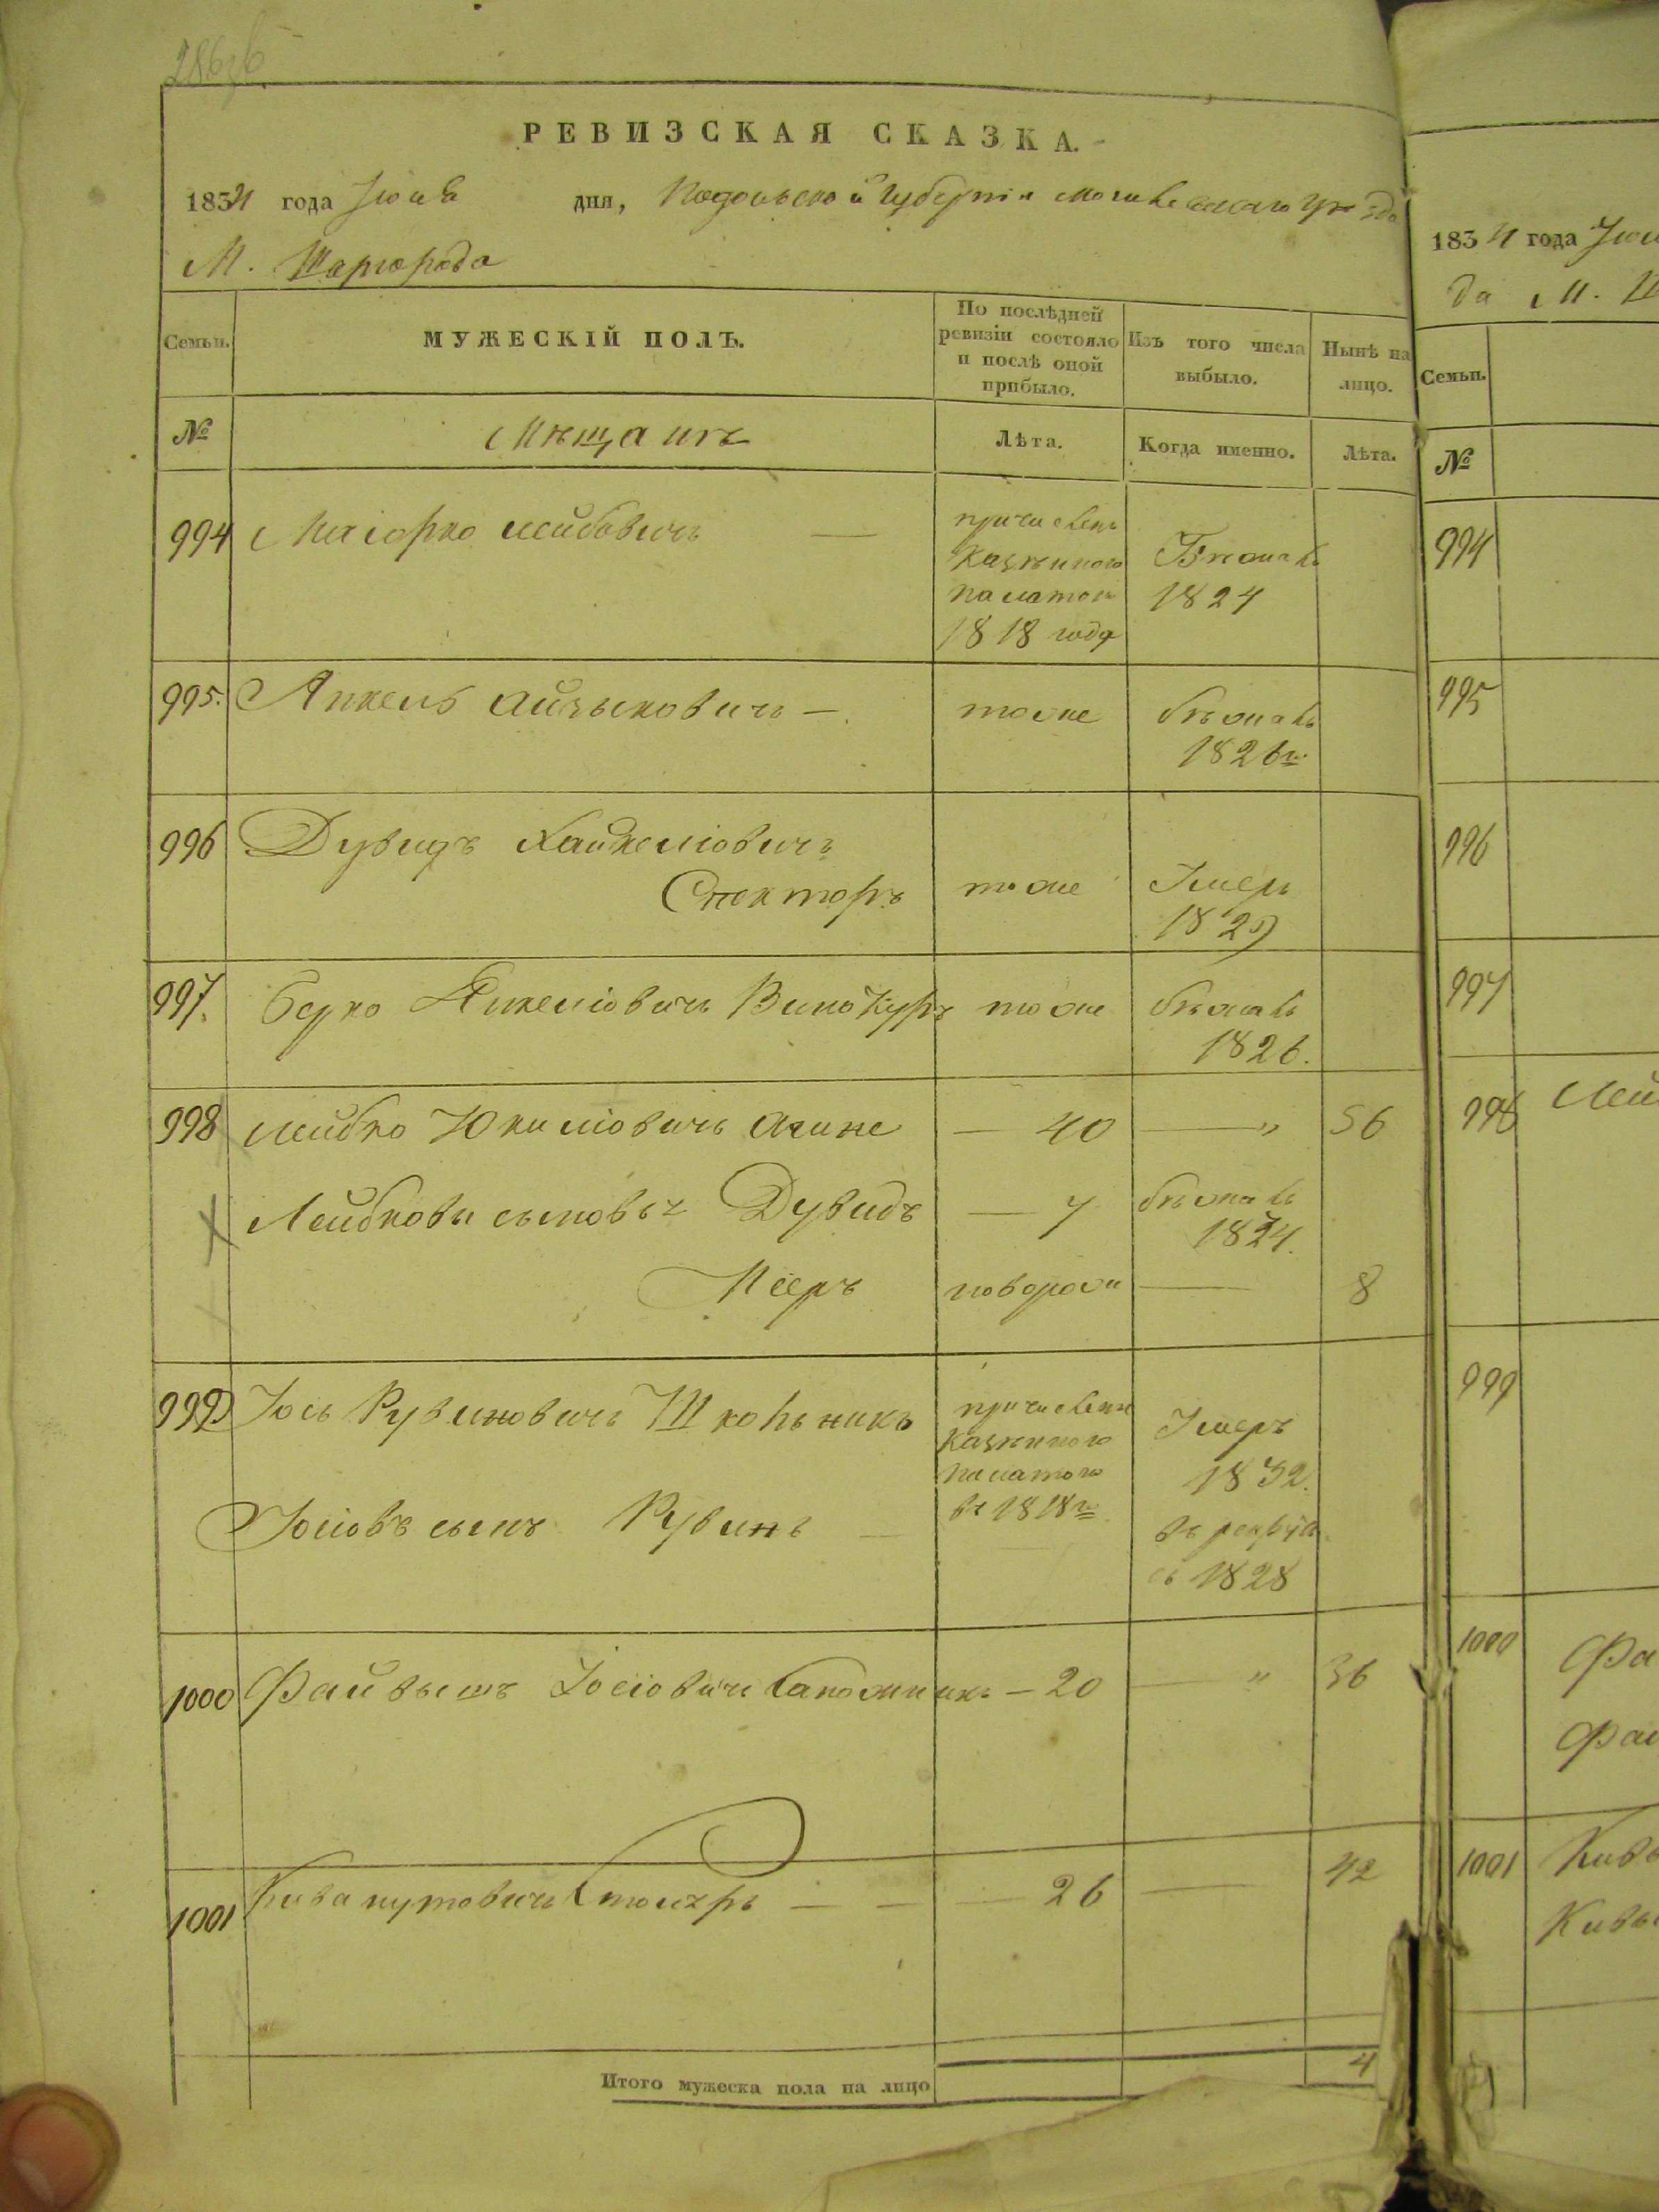 РЕВИЗСКАЯ СКАЗКА.
1834 года Июня дня, Подольской Губерніи Могилевскаго уезда
М. Шаргорода
Семьи. МУЖЕСКІЙ ПОЛЪ. По послѣдней ревизіи состояло и послѣ оной прибыло. Изъ того числа выбыло. Нынѣ на лицо.
№ Мѣщанъ Лѣта. Когда именно. Лѣта.
994 Маіорко Лейбовичъ — причисленъ Казенною палатою 1818 года Бѣжалъ 1824
995. Янкель Айзыковичъ — тоже бѣжалъ 1826 г.
996 Дувидъ Хаикеліовичъ
Спекторъ тоже Умеръ 1829
997. Берко Янкеліовичъ Винокуръ тоже бѣжалъ 1826.
998 Лейбко Юкиліовичъ — 40 — " 56
Лейбковы сыновья Дувидъ — 7 бѣжалъ 1824.
Мееръ новорож — 8
999 Іось Рувиновичъ Школьникъ причисленъ Казенною палатою въ 1818 г. Умеръ 1832.
Іосіовъ сынъ Рувинъ — въ рекруты 1828
1000 Файвышъ Іосіовичъ Сапожникъ — 20 — " 36
1001 Кива Нутовичъ Столяръ — — — 26 — 42
Итого мужеска пола на лицо 4
1834 года
да М.
Семьи.
№
994
995
996
997
998 Лей
999
1000 Фа
Фаи
1001 Кивь
Кивы